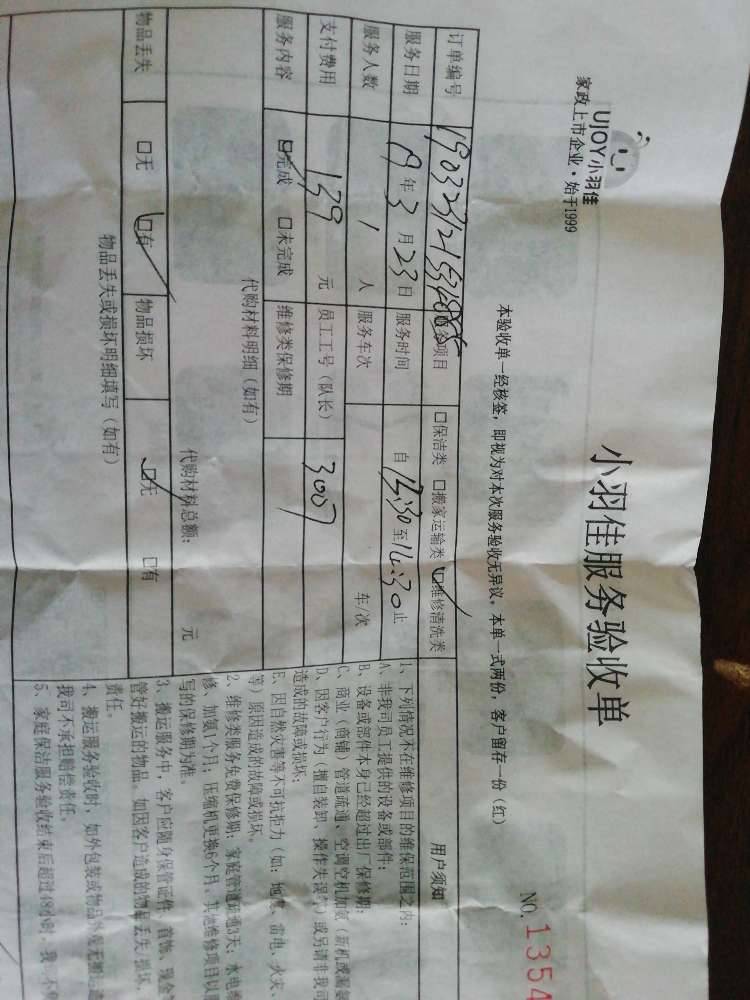 UJOY小羽佳
家政上市企业·始于1999
小羽佳服务验收单
NO. 1354
本验收单一经核签，即视为对本次服务验收无异议。本单一式两份，客户留存一份（红）
订单编号 服务项目 □保洁类 □搬家运输类 ☑维修清洗类
服务日期 19年3月23日 服务时间 自 12:30 至 14:30 止
服务人数 1 人 服务车次 车/次
支付费用 139 元 员工工号（队长） 3007
服务内容 ☑完成 □未完成 维修类保修期
代购材料明细（如有）
代购材料总额： 元
物品丢失 □无 ☑有 物品损坏 ☑无 □有
物品丢失或损坏明细填写（如有）
用户须知
1、下列情况不在维修项目的维保范围之内：
A、非我司员工提供的设备或部件；
B、设备或部件本身已经超过出厂保修期；
C、商业（商铺）管道疏通、空调空机加氨（新机或漏氨
D、因客户行为（擅自装卸、操作失误等）或另请非我司
造成的故障或损坏；
E、因自然灾害等不可抗拒力（如：地震、雷电、火灾、
等）原因造成的故障或损坏。
2、维修类服务免费保修期：家庭管道疏通3天；水电维
修、加氨1个月；压缩机更换6个月。其他维修项目以
写的保修期为准。
3、搬运服务中，客户应随身保管证件、首饰、现金
管好搬运的物品。如因客户造成的物品丢失、损坏，
责任。
4、搬运服务验收时，如外包装或物品外观无搬运造
我司不承担赔偿责任。
5、家庭保洁服务验收结束后超过48小时，我司不